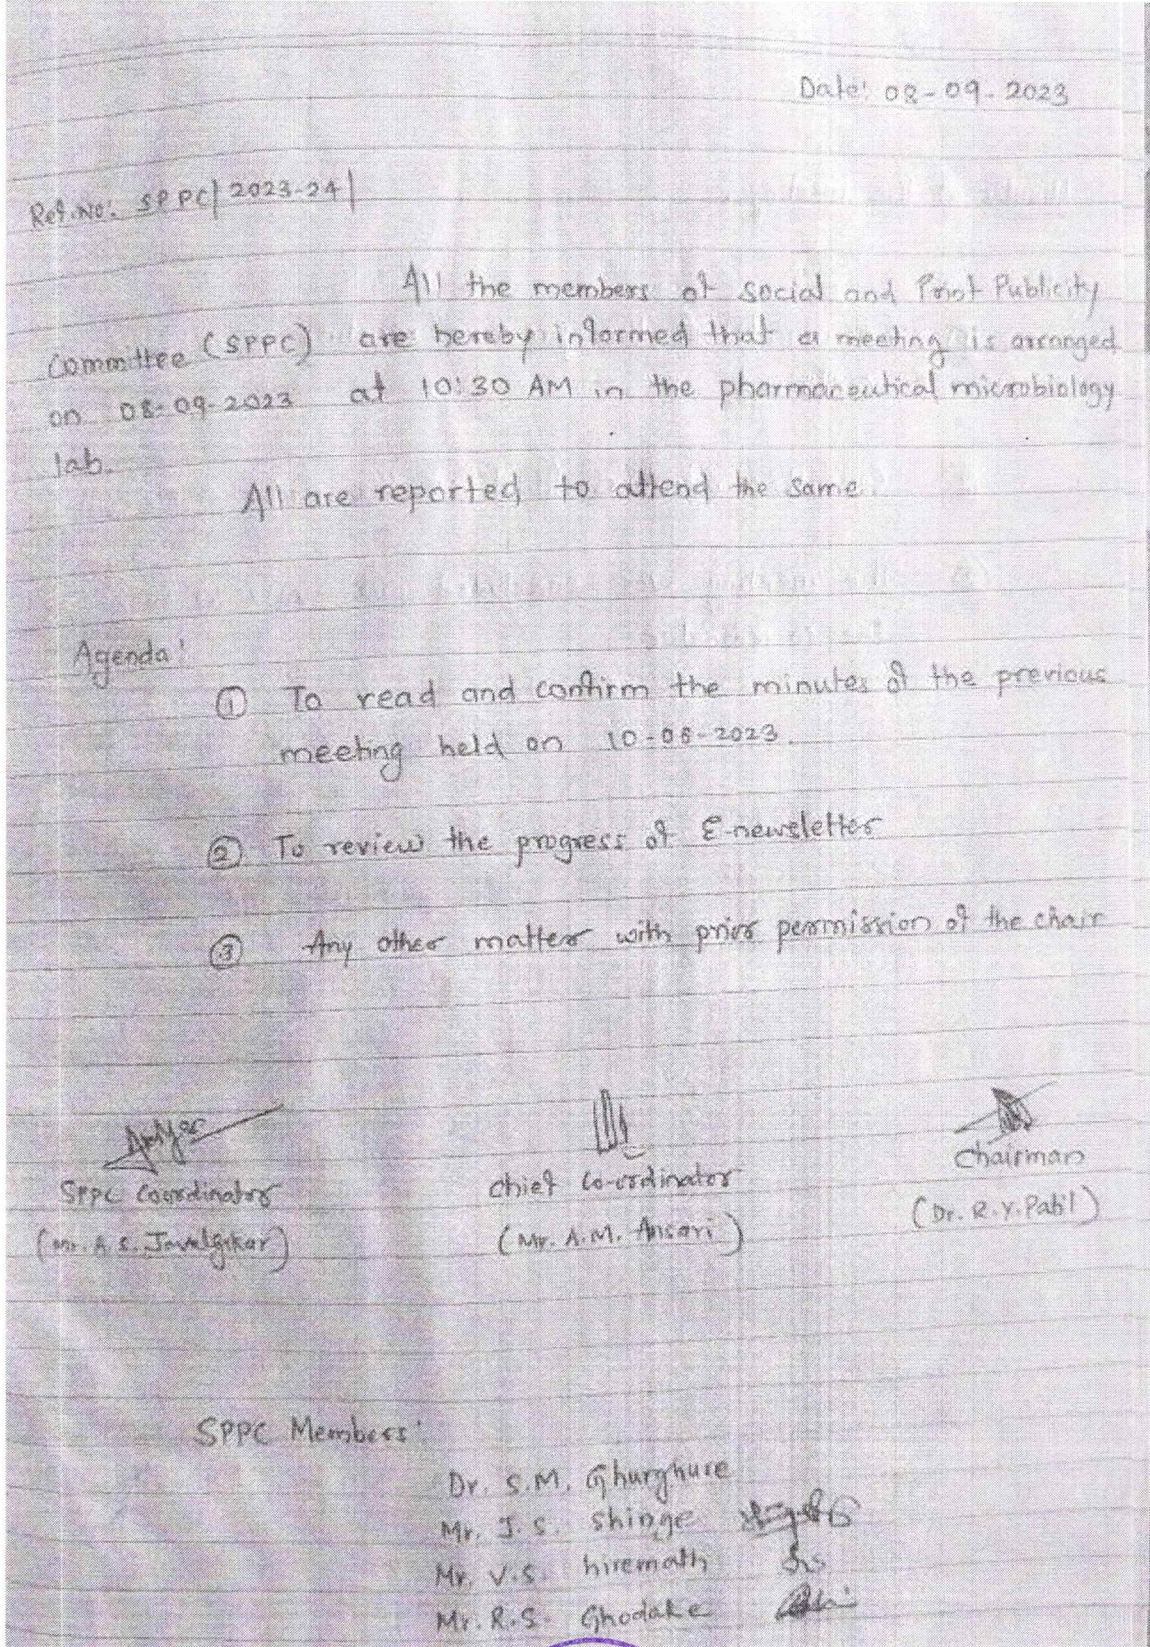 Date: 08-09-2023
Ref.No: SPPC/2023-24/
All the members of social and Print Publicity
Committee (SPPC) are hereby informed that a meeting is arranged
on 08-09-2023 at 10:30 AM in the pharmaceutical microbiology
lab.
All are reported to attend the same.
Agenda:
① To read and confirm the minutes of the previous
meeting held on 10-06-2023.
② To review the progress of E-newsletter
③ Any other matter with prior permission of the chair
SPPC Coordinator
chief Co-ordinator
Chairman
(Mr. A.S. Javalgikar)
(Mr. A.M. Ansari)
(Dr. R.Y. Patil)
SPPC Members:
Dr. S.M. Ghurghure
Mr. J.S. Shinge
Mr. V.S. hiremath
Mr. R.S. Ghodake